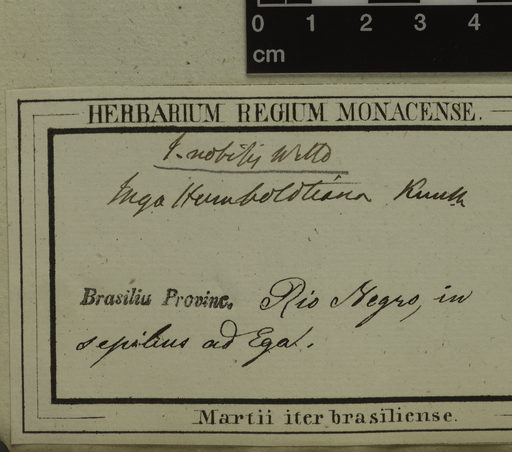 0 1 2 3 4
cm
HERBARIUM REGIUM MONACENSE.
I. nobilis Willd
Inga Humboldtiana Kunth
Brasilia Provinc. Rio Negro, in
sepibus ad Ega.
Martii iter brasiliense.